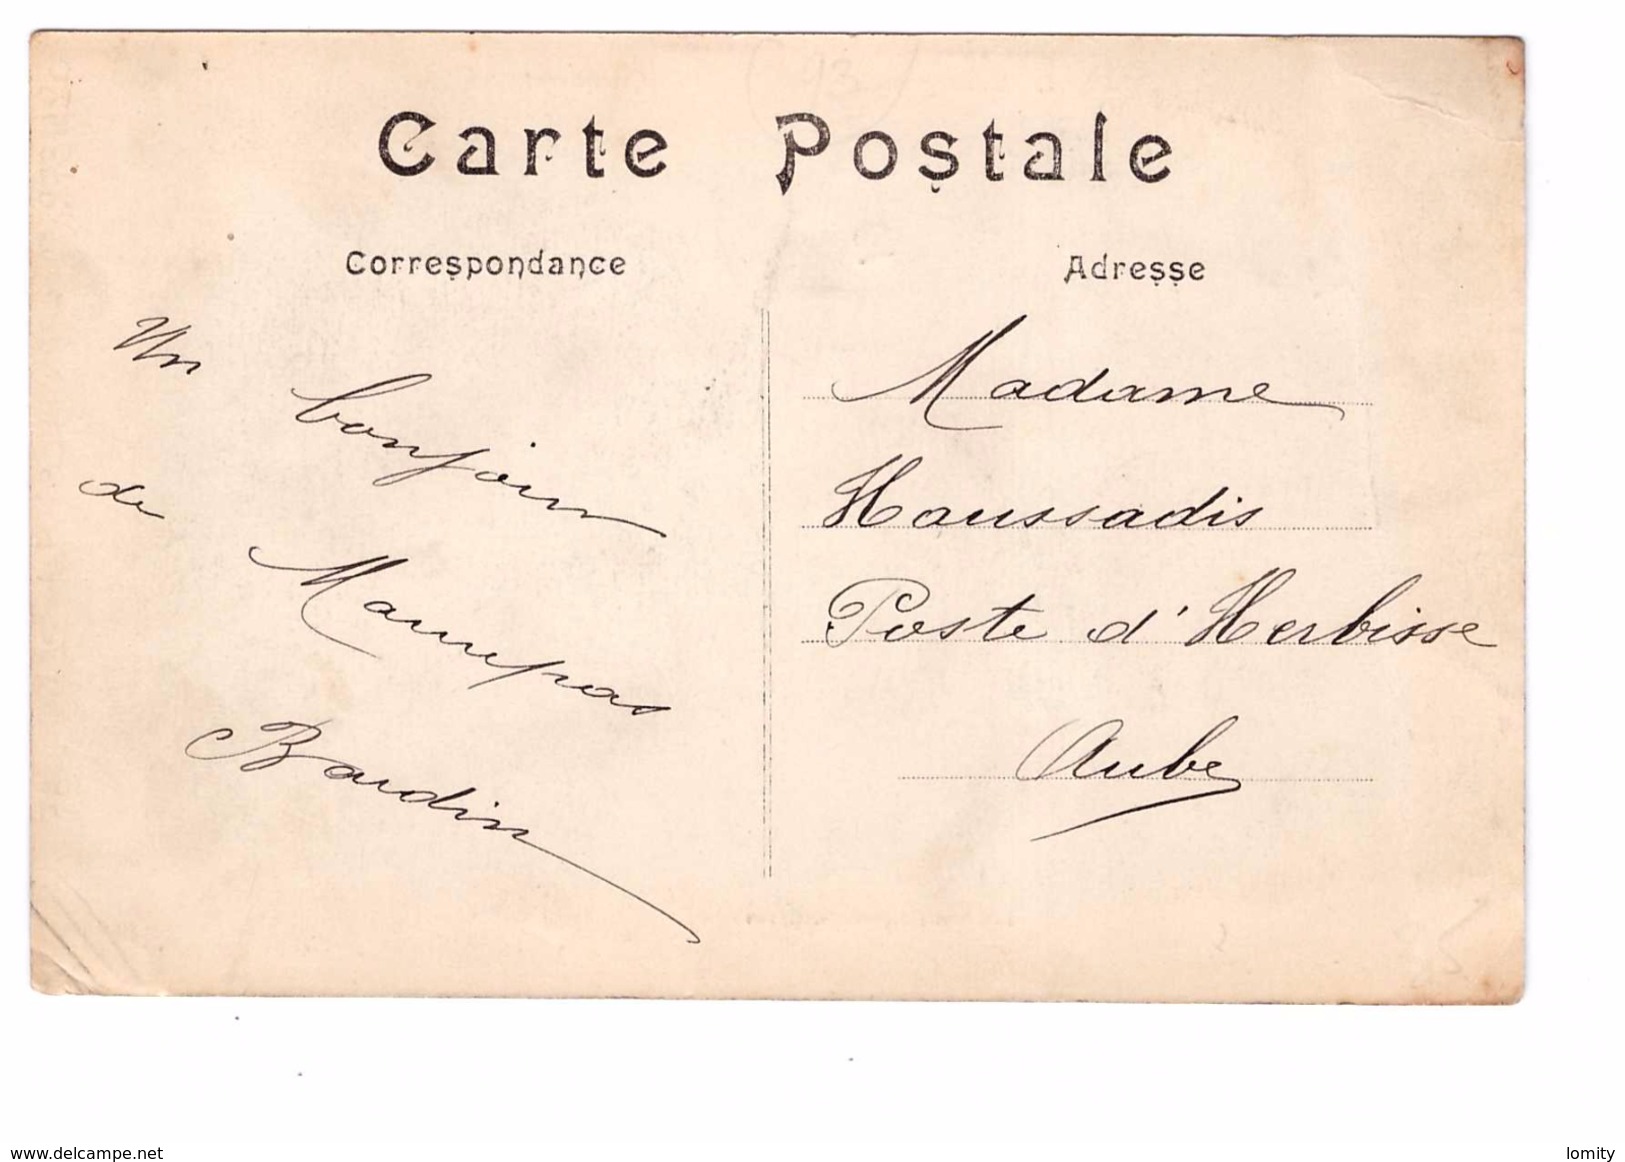 Carte Postale
Correspondance
Un
bonjour
de
Maurepas
Baudin
Adresse
Madame
Houssadis
Poste d'Herbisse
Aube
www.delcampe.net
lomity